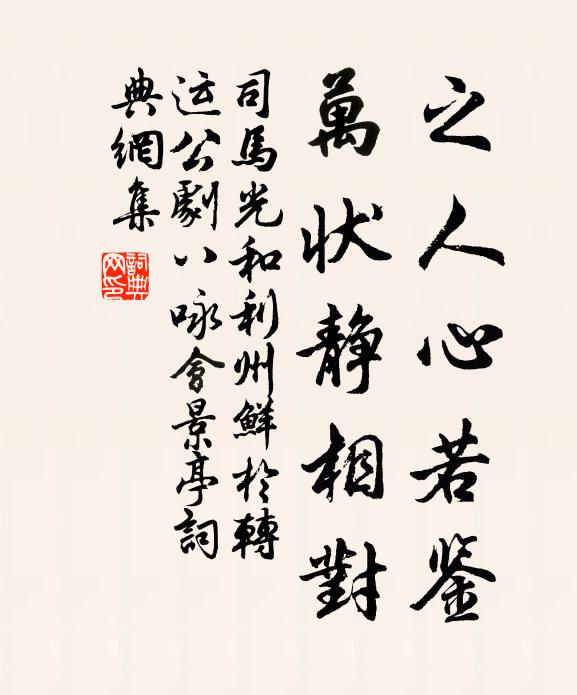 之人心若鉴
萬状静相對
司馬光和利州鮮於轉
运公劇八咏會景亭詞
典網集
詞典
网印